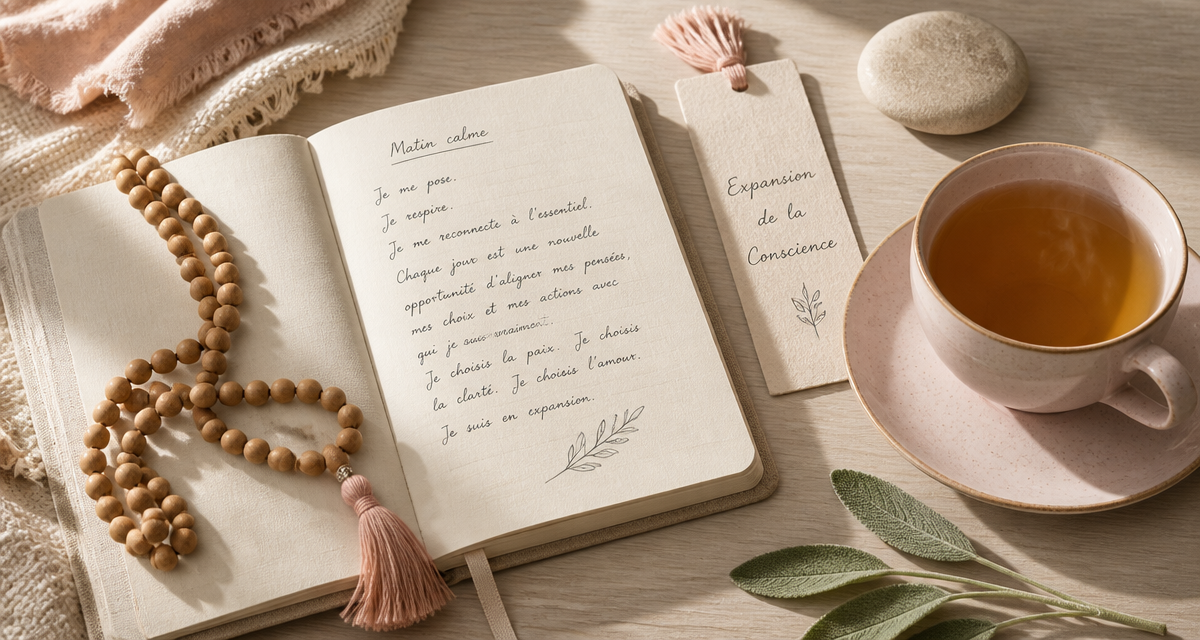 Matin calme
Je me pose.
Je respire.
Je me reconnecte à l'essentiel.
Chaque jour est une nouvelle
opportunité d'aligner mes pensées,
mes choix et mes actions avec
qui je
Je choisis la paix. Je choisis
la clarté. Je choisis l'amour.
Je suis en expansion.
Expansion
de la
Conscience